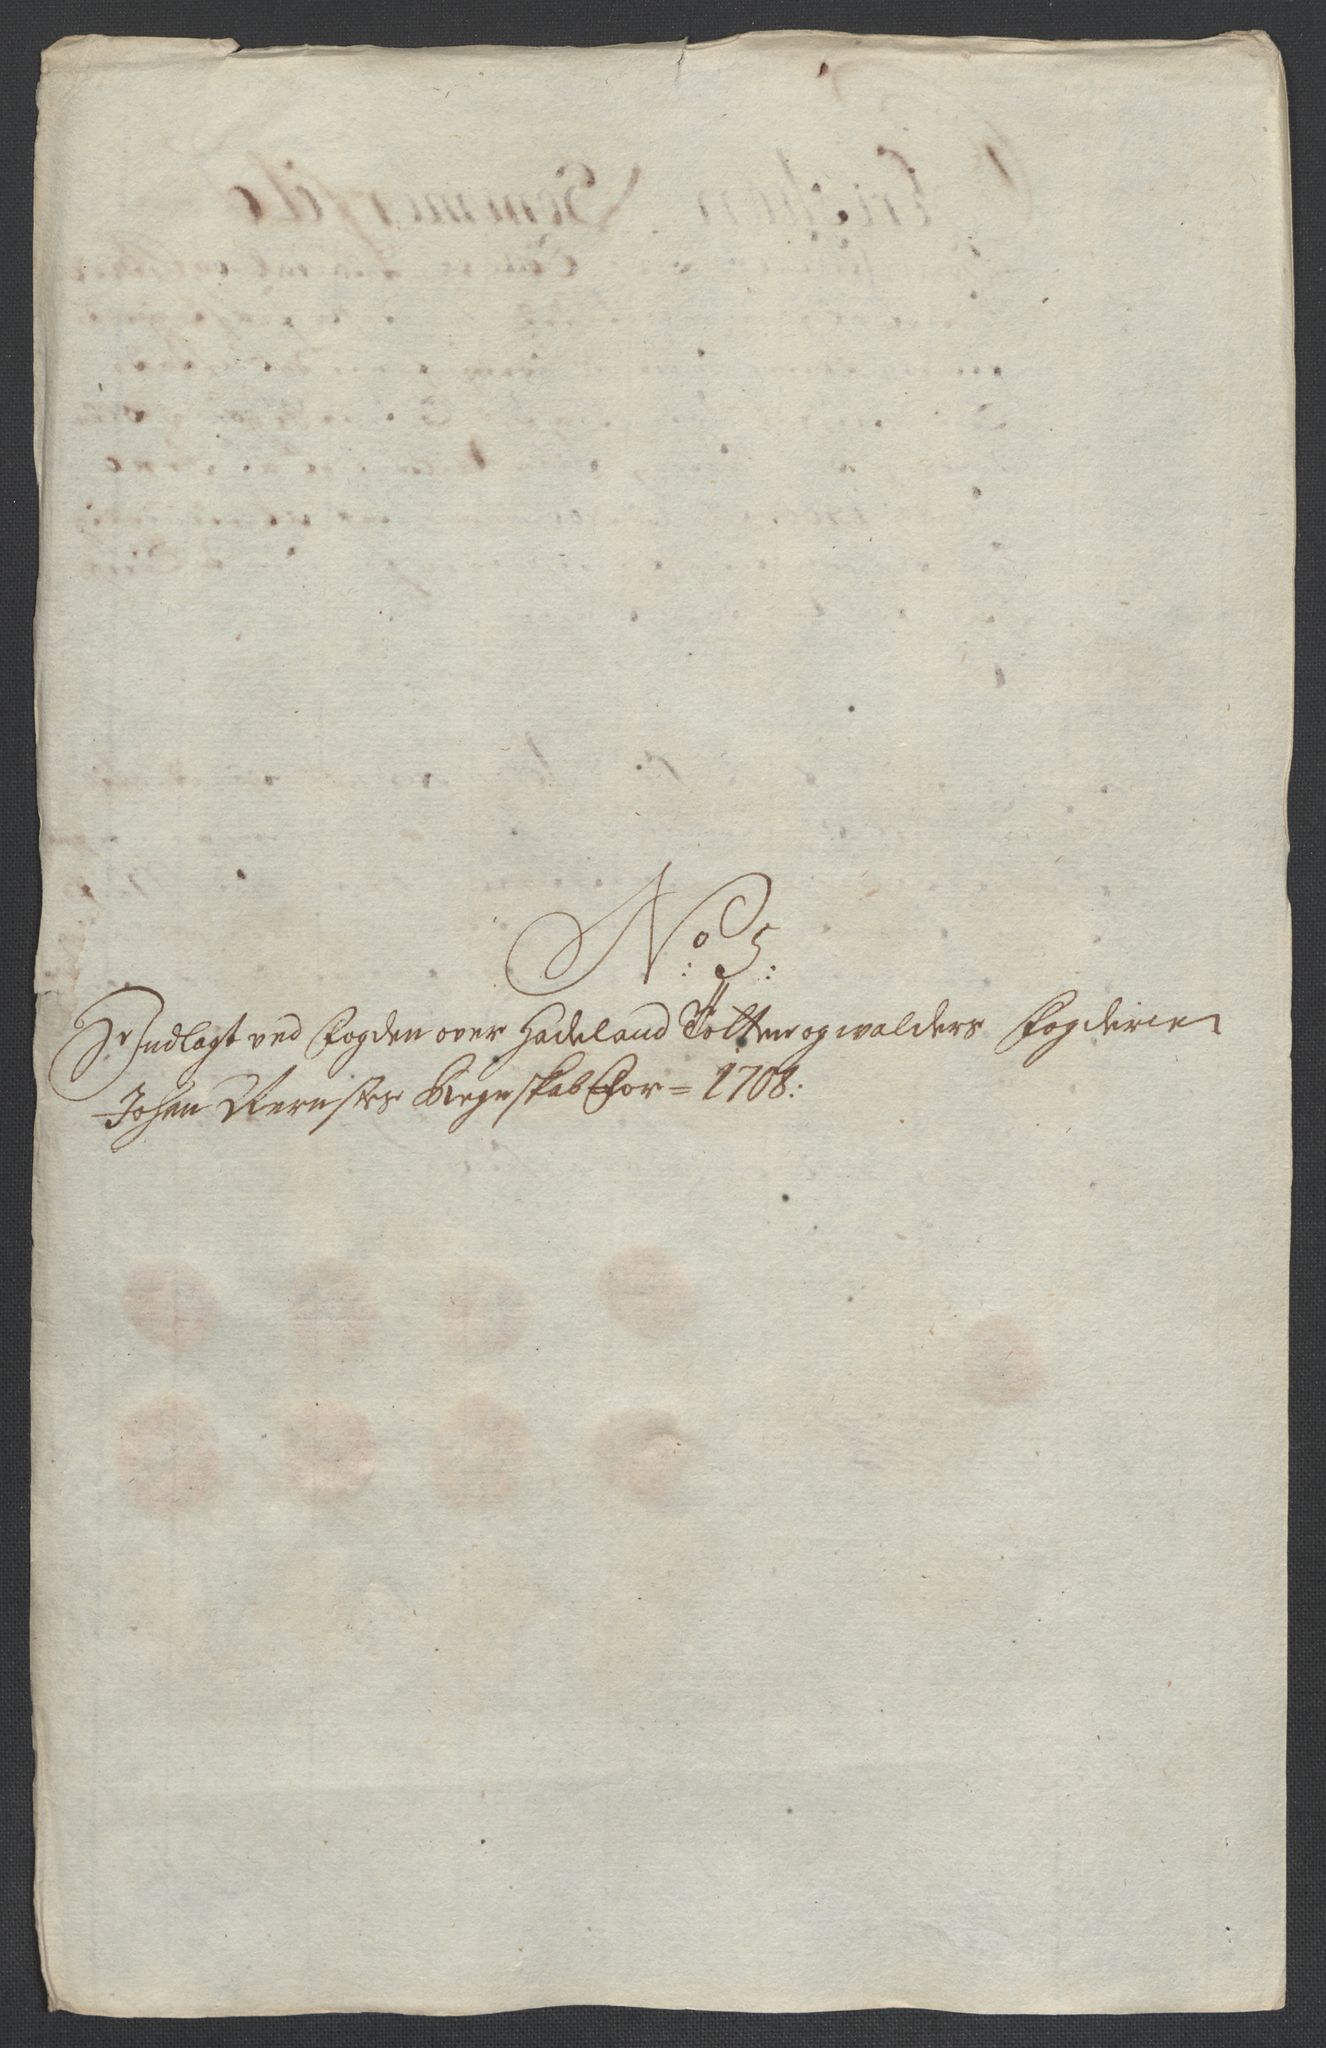 No: 5:
Er Indlagt ved Fogden over Hadeland Totten og walders Fogderie
Johan Regnskab For = 1708: